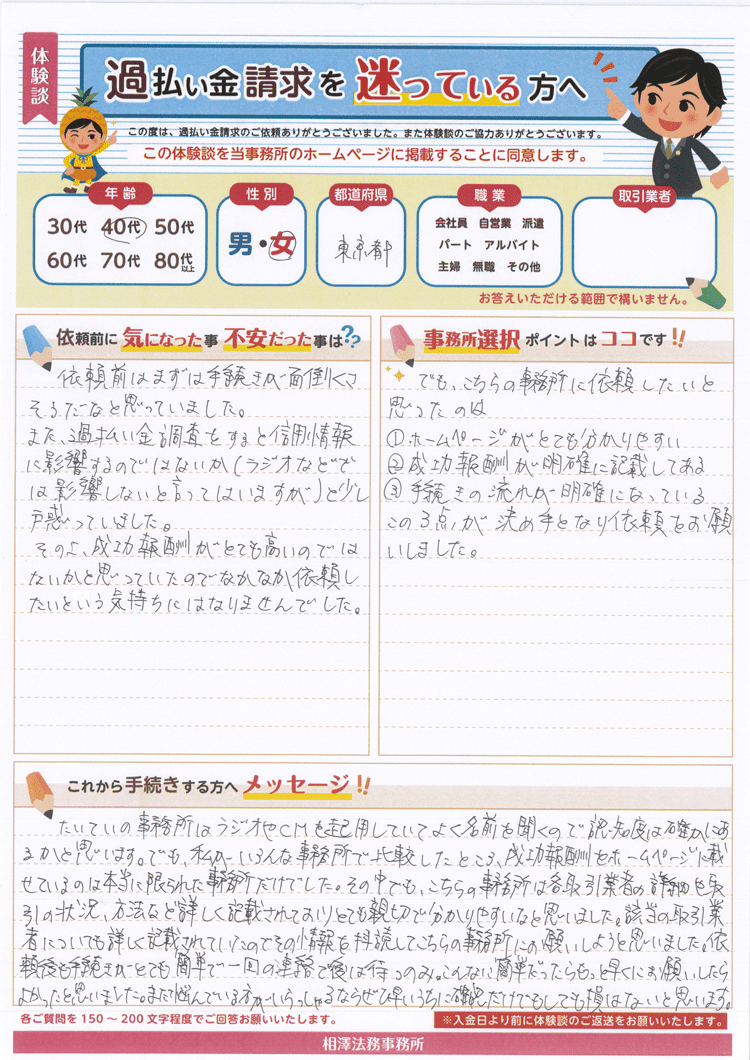 体験談
過払い金請求を迷っている方へ
この度は、過払い金請求のご依頼ありがとうございました。また体験談のご協力ありがとうございます。
この体験談を当事務所のホームページに掲載することに同意します。
年齢
30代 40代 50代
60代 70代 80代以上
性別
男・女
都道府県
東京都
職業
会社員 自営業 派遣
パート アルバイト
主婦 無職 その他
取引業者
お答えいただける範囲で構いません。
依頼前に気になった事 不安だった事は??
依頼前はまずは手続きが面倒くさ
そうだなと思っていました。
また、過払い金調査をすると信用情報
に影響するのではないか(ラジオなどで
は影響しないと言ってはいますが)と少し
戸惑っていました。
その上、成功報酬がとても高いのでは
ないかと思っていたのでなかなか依頼し
たいという気持ちにはなりませんでした。
事務所選択ポイントはココです!!
でも、こちらの事務所に依頼したいと
思ったのは
①ホームページがとても分かりやすい
②成功報酬が明確に記載してある
③手続きの流れが明確になっている
この3点が決め手となり依頼をお願
いしました。
これから手続きする方へメッセージ!!
たいていの事務所はラジオやCMを起用していてよく名前を聞くので認知度は確かにあ
るかと思います。でも、私がいろんな事務所で比較したところ、成功報酬をホームページに載
せているのは本当に限られた事務所だけでした。その中でも、こちらの事務所は各取引業者の詳細も取
引の状況、方法など詳しく記載されておりとても親切で分かりやすいなと思いました。該当の取引業
者についても詳しく記載されていたのでその情報を拝読してこちらの事務所にお願いしようと思いました。依
頼後も手続きがとても簡単で一回の連絡で後は待つのみ。こんなに簡単だったらもっと早くにお願いしたら
よかったと思いました。まだ悩んでいる方がいらっしゃるならぜひ早いうちに確認だけでもしても損はないと思います。
各ご質問を150～200文字程度でご回答お願いいたします。
※入金日より前に体験談のご返送をお願いいたします。
相澤法務事務所